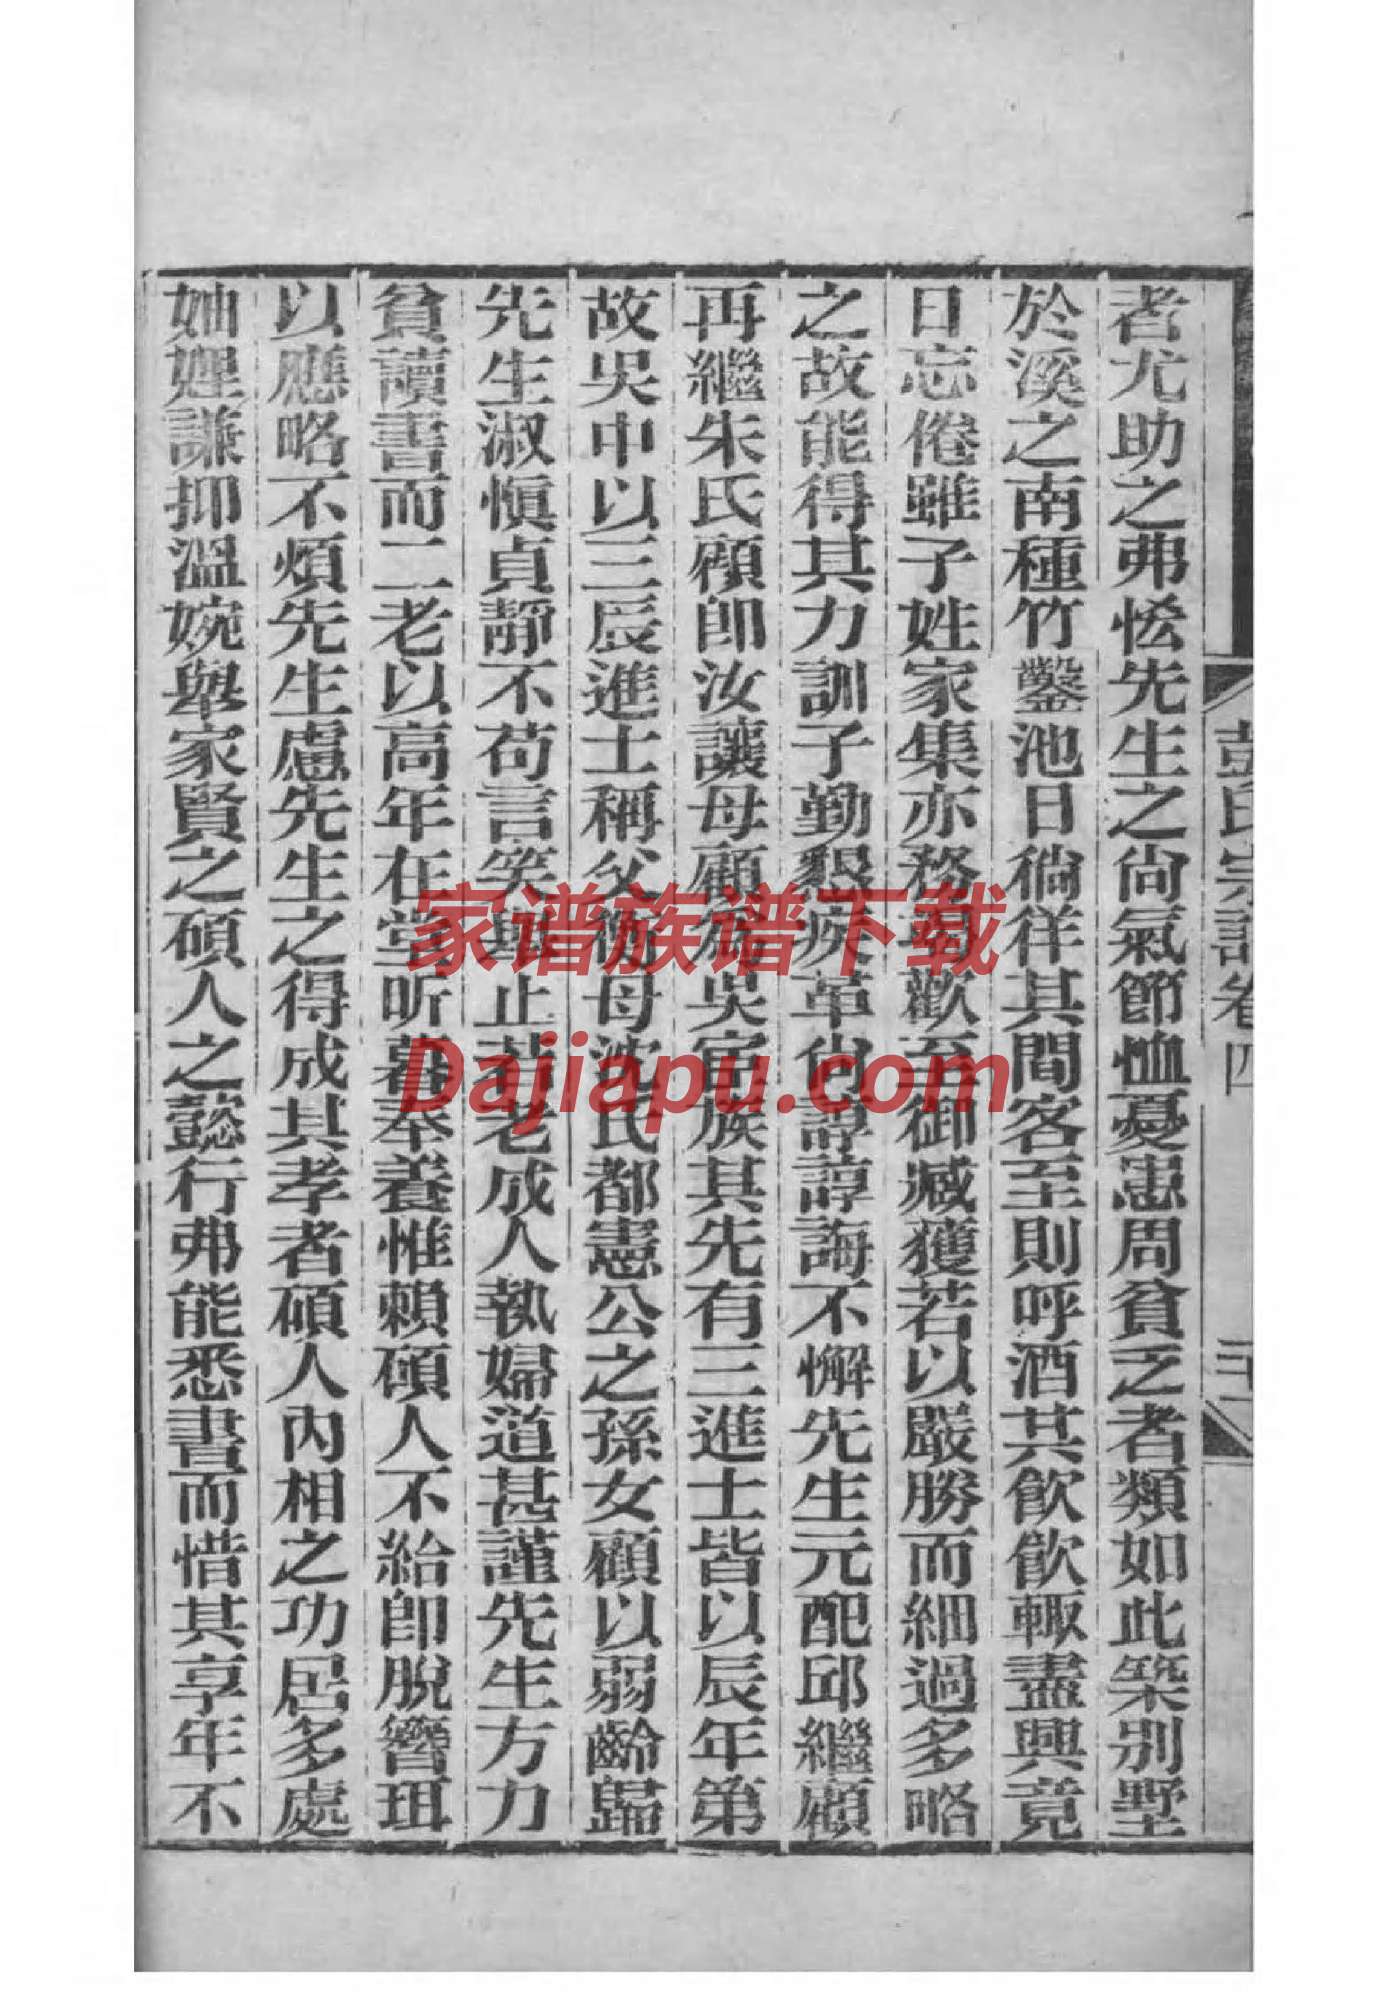 者尤助之弗恡先生之尙氣節恤憂患周貧乏者類如此築別墅
於溪之南種竹鑿池日徜徉其間客至則呼酒其飮飮輒盡興竟
日忘倦雖子姓家集亦務歡至御臧獲若以嚴勝而細過多略
之故能得其力訓子勤懇疾革尙諄諄誨不懈先生元配邱繼顧
再繼朱氏顧卽汝讓母顧爲吳宦族其先有三進士皆以辰年第
故吳中以三辰進士稱父衡母沈氏都憲公之孫女顧以弱齡歸
先生淑愼貞靜不苟言笑止若老成人執婦道甚謹先生方力
貧讀書而二老以高年在堂昕暮奉養惟賴碩人不給卽脫簪珥
以應略不煩先生慮先生之得成其孝者碩人內相之功居多處
妯娌謙抑溫婉舉家賢之碩人之懿行弗能悉書而惜其享年不
彭氏宗譜卷四
家谱族谱下载
Dajiapu.com